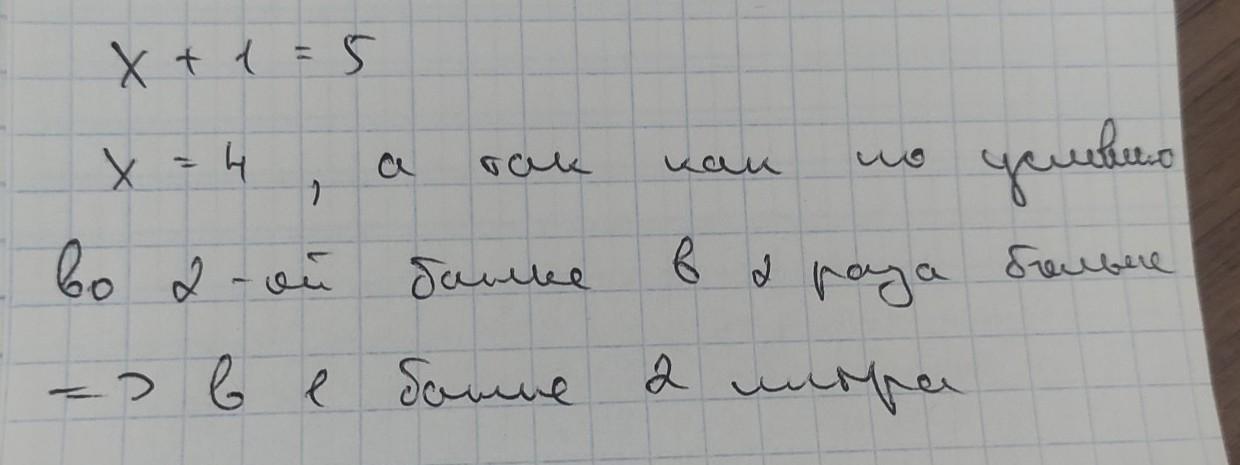 x + 1 = 5
x = 4 , а так как по условию
во 2-ой банке в 2 раза больше
=> в 1 банке 2 литра